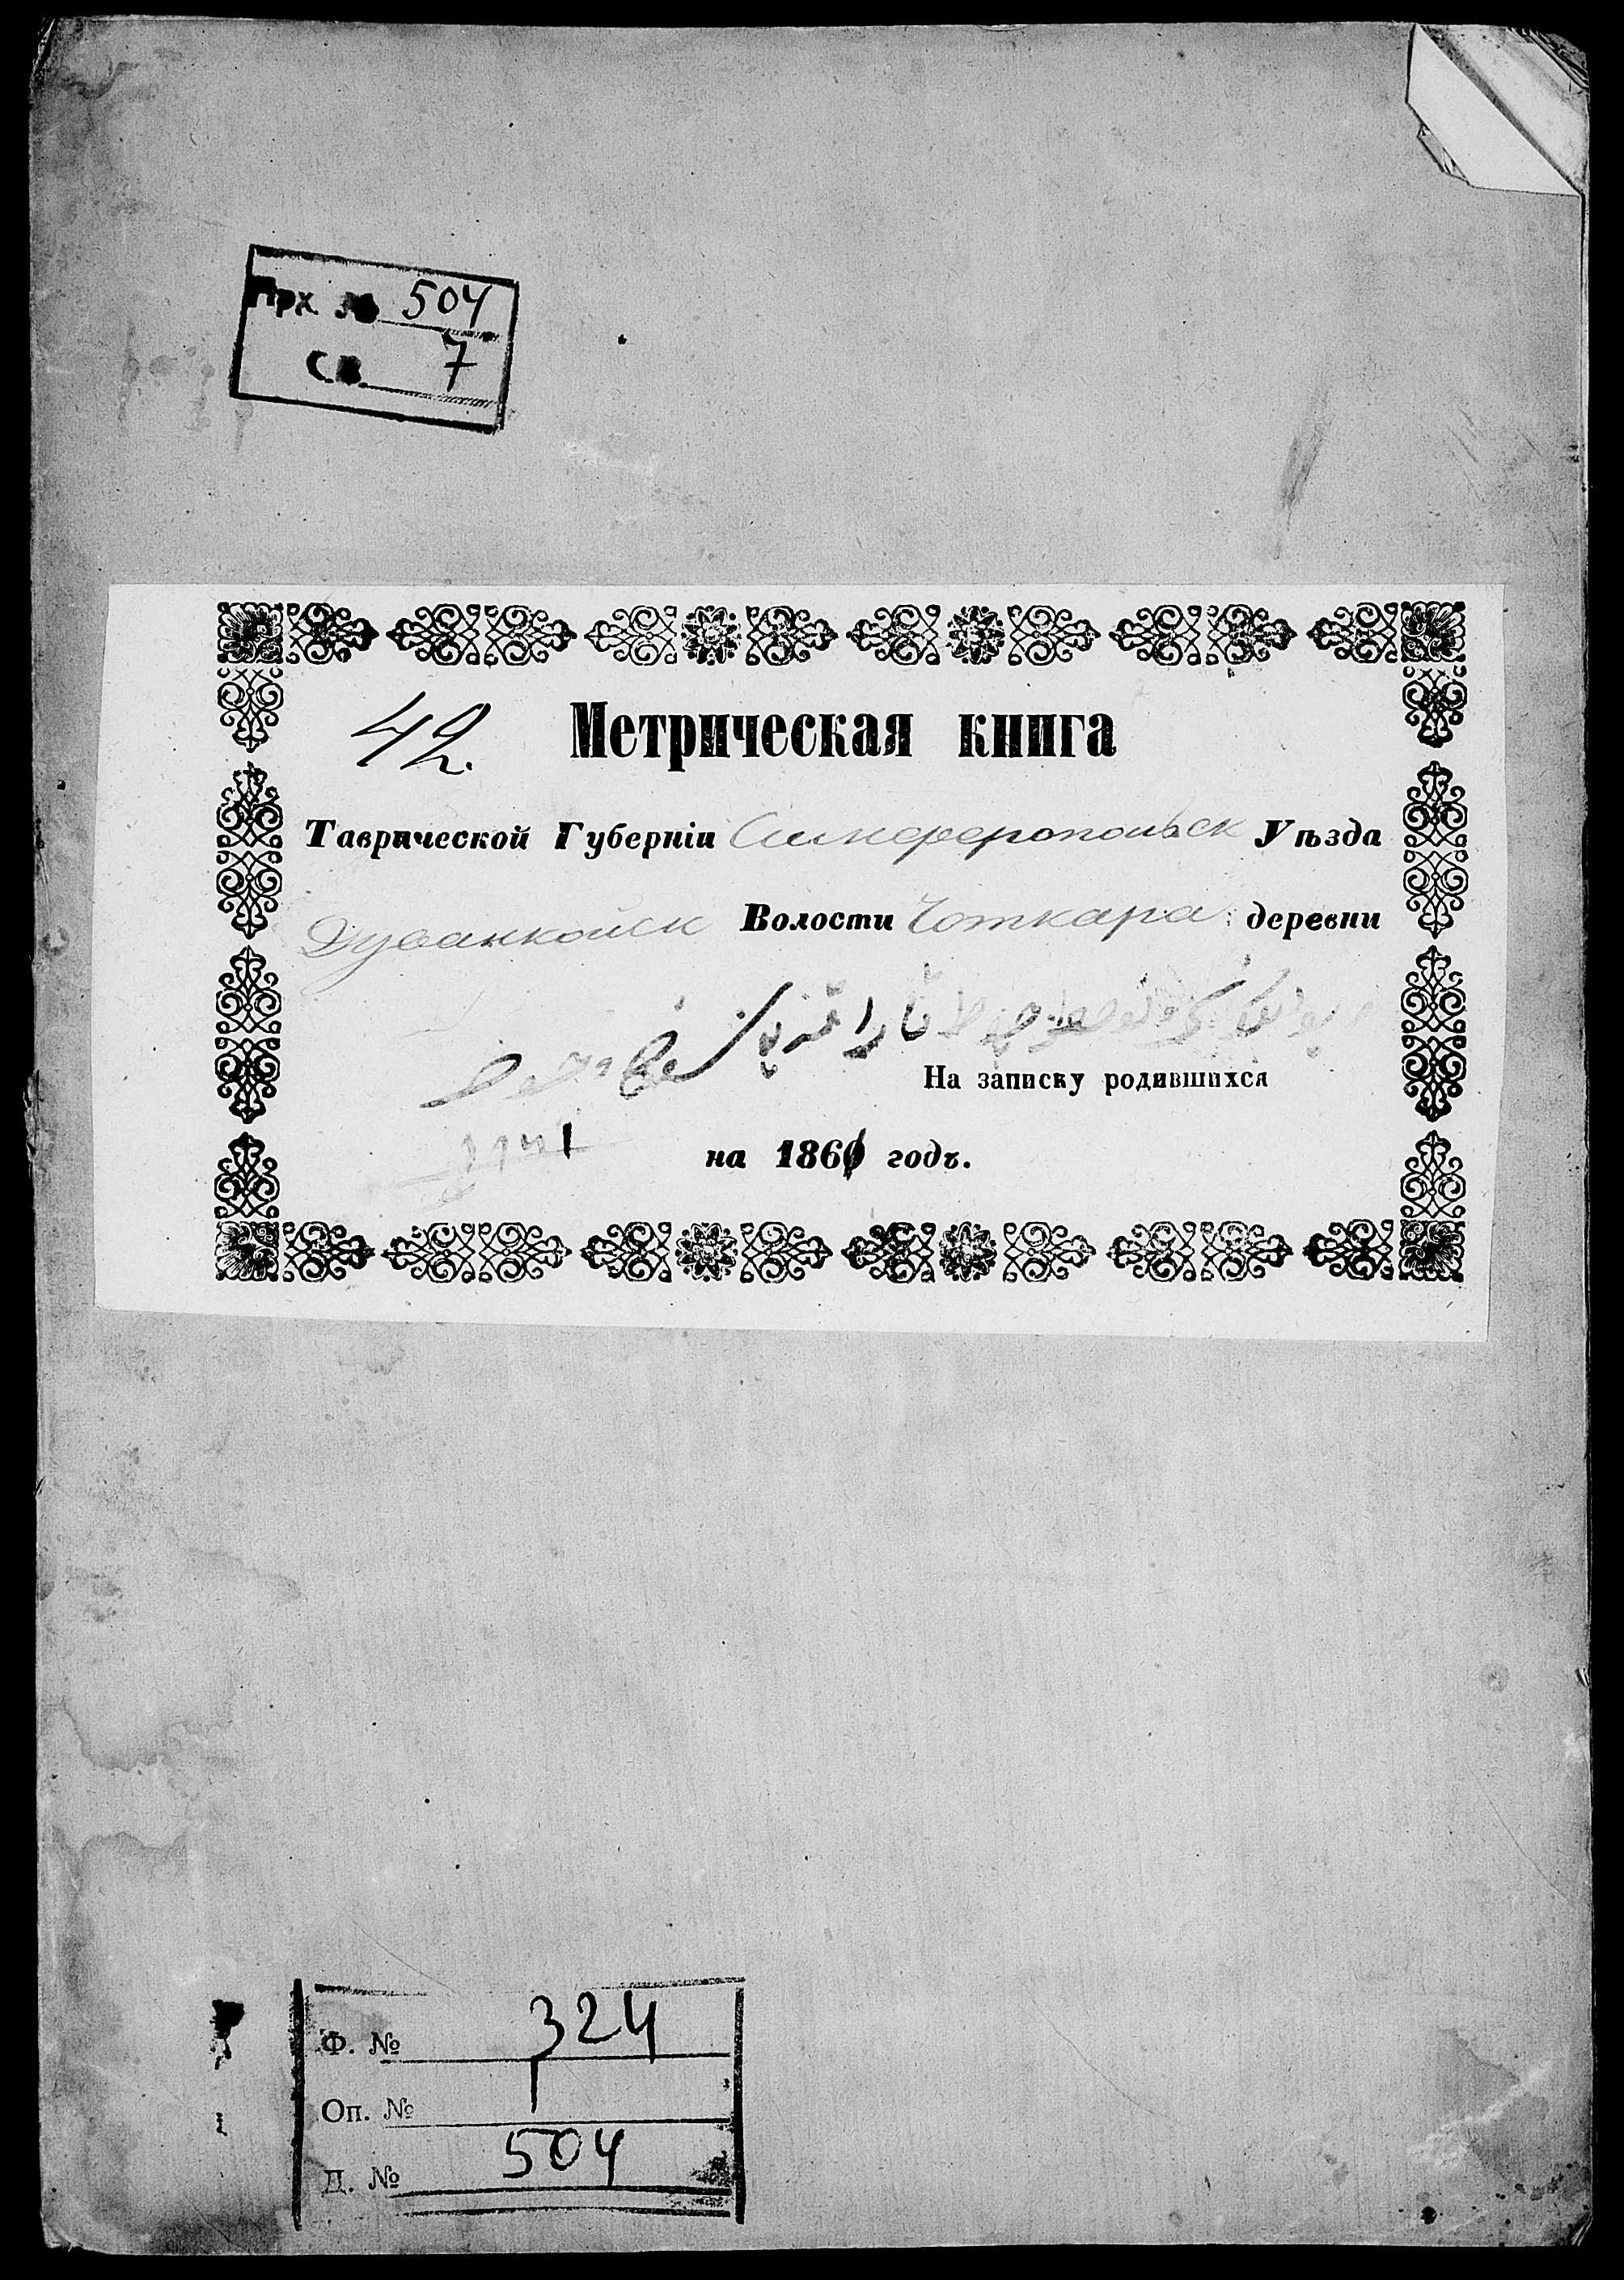 Арх № 504
св. 7
42. Метрическая книга
Таврической Губерніи Симферопольск Уѣзда
Дуванкойск Волости Чоткара деревни
На записку родившихся
на 1861 годъ.
Ф. № 324
Оп. № 1
Д. № 504